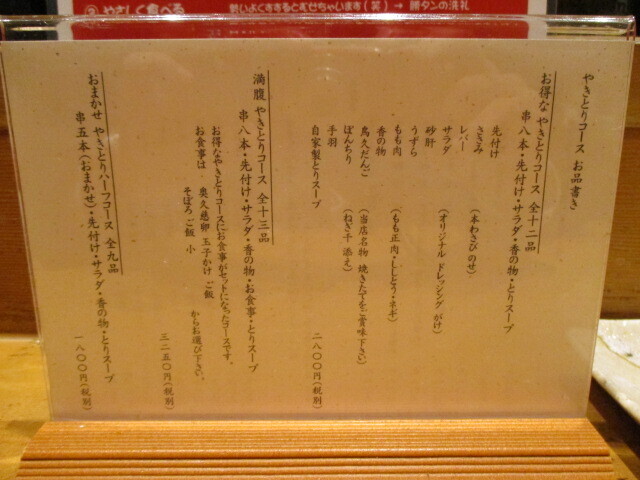 ③ やさしく食べる
勢いよくすするとむせちゃいます(笑) → 勝タンの洗礼
やきとりコース お品書き
お得な やきとりコース 全十二品
串八本・先付け・サラダ・香の物・とりスープ
先付け
ささみ (本わさび のせ)
レバー
サラダ (オリジナル ドレッシング がけ)
砂肝
うずら
もも肉 (もも正肉・ししとう・ネギ)
香の物
鳥久だんご (当店名物 焼きたてをご賞味下さい)
ぼんちり (ねぎ干 添え)
手羽
自家製とりスープ
二八〇〇円(税別)
満腹 やきとりコース 全十三品
串八本・先付け・サラダ・香の物・お食事・とりスープ
お得なやきとりコースにお食事がセットになったコースです。
お食事は 奥久慈卵 玉子かけ ご飯
そぼろ ご飯 小
からお選び下さい。
三二五〇円(税別)
おまかせ やきとりハーフコース 全九品
串五本(おまかせ)・先付け・サラダ・香の物・とりスープ
一八〇〇円(税別)